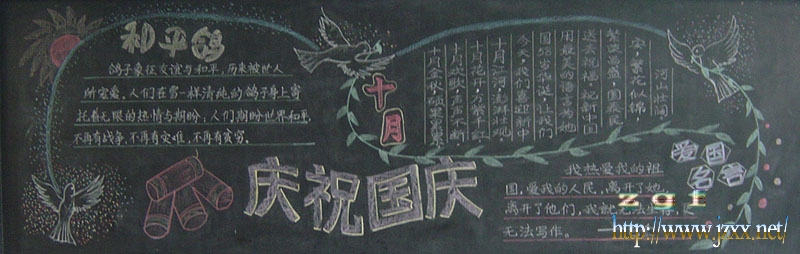 和平鸽
鸽子象征友谊与和平,历来被世人
所宠爱。人们在雪一样清纯的鸽子身上寄
托着无限的热情与期盼;人们期盼世界和平,
不再有战争,不再有灾难,不再有贫穷。
十月
十月金秋,硕果累累
十月欢歌,声声不断
十月花卉,万紫千红
十月江河,流淌壮观
今天,我们喜迎新中
国华诞,让我们
用最美的语言为她
送去祝福,祝新中国
繁荣昌盛,国泰民
安,繁花似锦,
河山壮阔
庆祝国庆
爱国名言
我热爱我的祖
国,爱我的人民,离开了她,
离开了他们,我就无法生存,
无法写作。
zgt
http://www.jzxx.net/